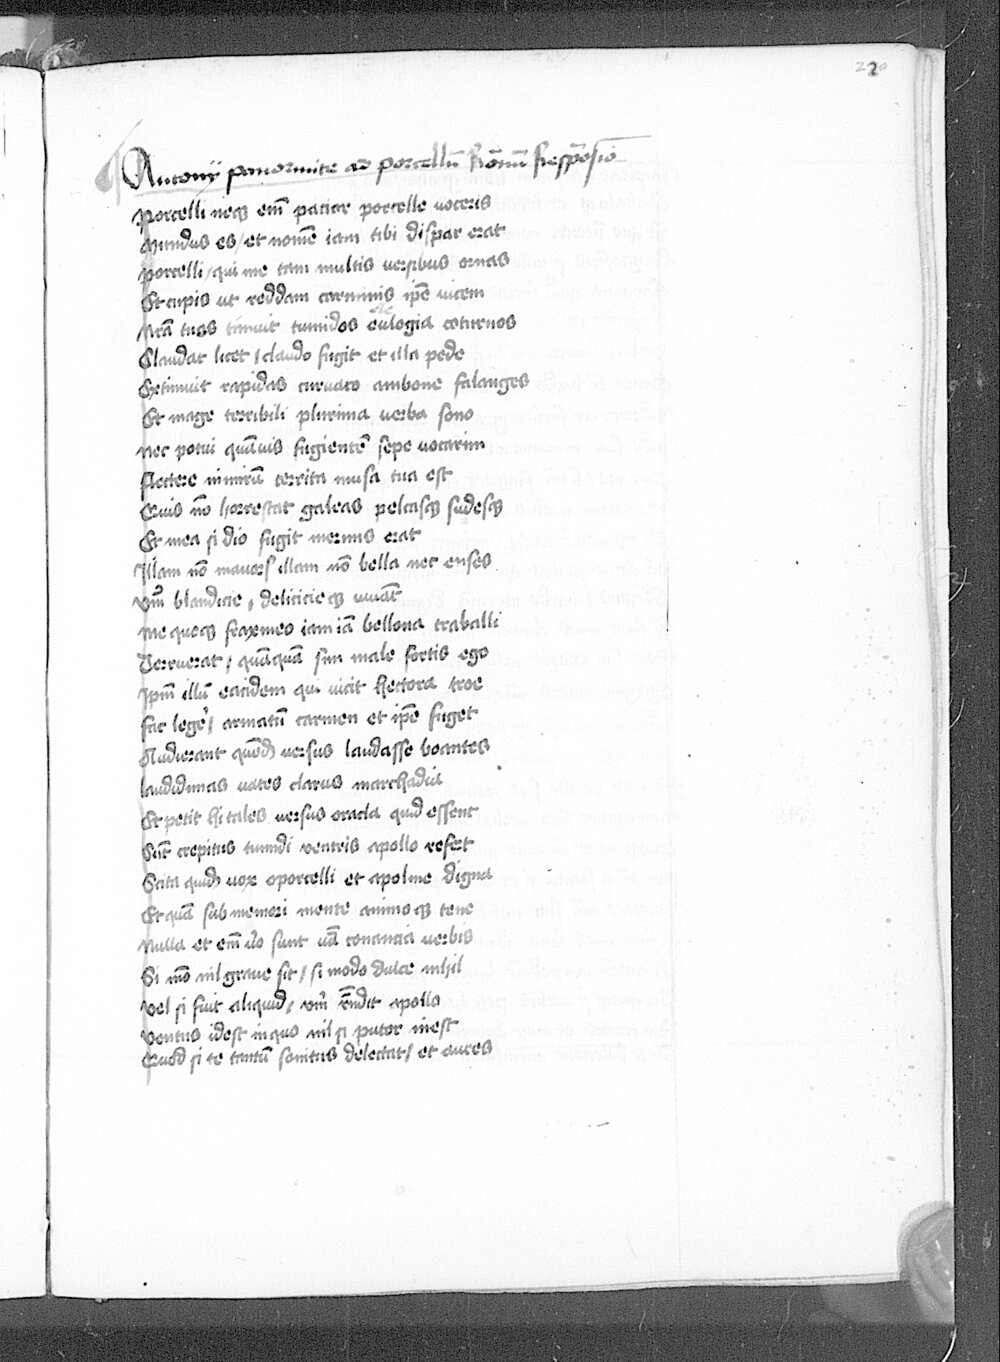 220
Antonij panormite ad porcellũ Romũ Respõsio
Porcelli neqȝ em̃ patiar porcelle voceris
Mundus es / et nomẽ iam tibi dispar erat
Porcelli / qui me tam multis versibus ornas
Et cupis ut reddam carminis ip̃e vicem
Nrã tuos timuit tumidos eulogia coturnos
Claudat licet / claudo fugit et illa pede
Extimuit rapidas curvato ambone falanges
Et mage terribili plurima verba sono
Nec potui quãvis fugientẽ sepe vocarim
Flectere nimirũ territa musa tua est
Quis nõ horrescat galeas peltasqȝ sudesqȝ
Et mea si dio fugit inermis erat
Illam nõ mavors illam nõ bella nec enses
Vm̃ blanditie, delitieqȝ iuvãt
Me quoqȝ fraxineo iam iã bellona traballi
Terruerat / quãquã sim male fortis ego
Ip̃m illũ eacidem qui vicit Hectora troe
Fac legẽ / armatũ carmen et ip̃e fuget
Audierant quõdȝ versus laudasse boantes
laudidimas vates clarus
Et petit hi tales versus oracla quid essent
Sũt crepitus tumidi ventris apollo refert
Scita quidȝ vox o porcelli et apoline digna
Et quã sub memori mente animoqȝ tene
Nulla et em̃ v̾o sunt vr̃a tonancia verbis
Si mõ nil grave sit / si modo dulce nihil
Vel si fuit aliquid, vm̃ rñdit apollo
Ventus idest in quo nil si putor inest
Quod si te tantũ sonitus delectat / et aures